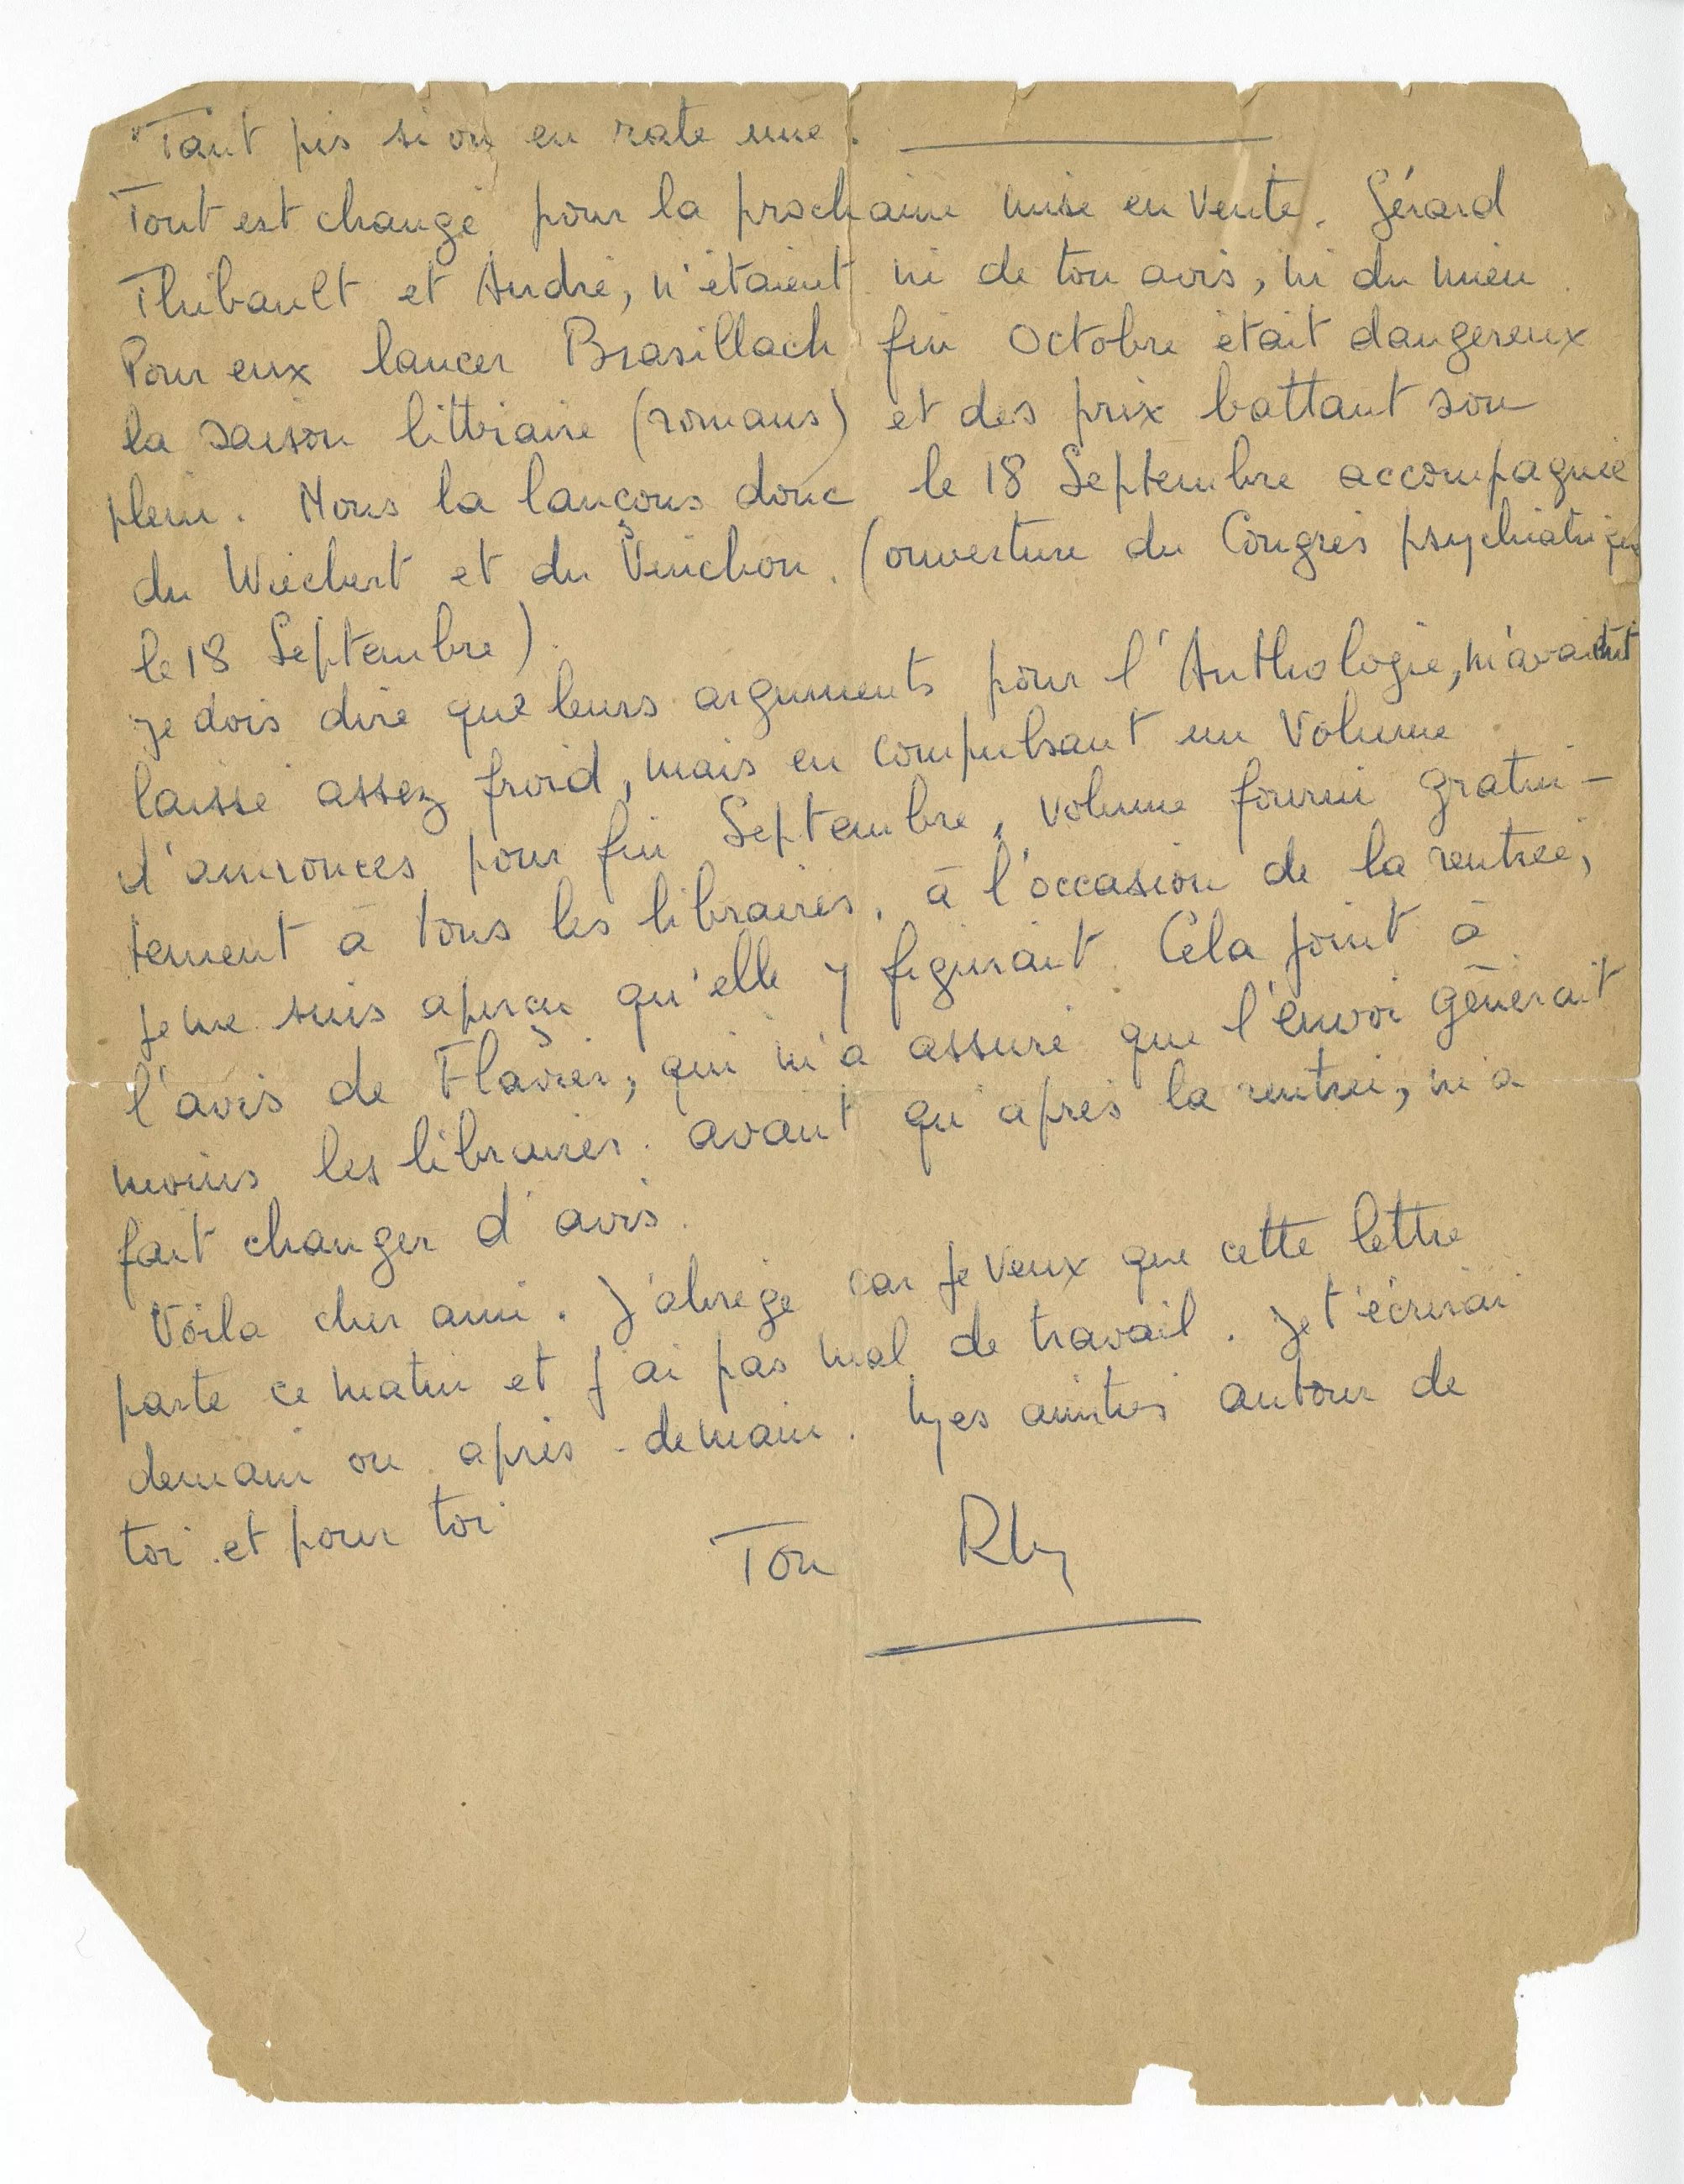 Tant pis si on en rate une.
Tout est changé pour la prochaine mise en vente. Gérard
Thibault et André, n'étaient ni de ton avis, ni du mien.
Pour eux lancer Brasillach fin Octobre était dangereux
la saison littéraire (romans) et des prix battant son
plein. Nous la lançons donc le 18 Septembre accompagnée
du Wiechert et du Vinchon. (ouverture du Congrès psychiatrique
le 18 Septembre).
Je dois dire que leurs arguments pour l'Anthologie, m'avaient
laissé assez froid, mais en compulsant un volume
d'annonces pour fin Septembre, volume fourni gratui-
tement à tous les libraires, à l'occasion de la rentrée,
je me suis aperçu qu'elle y figurait. Cela joint à
l'avis de Flavier, qui m'a assuré que l'envoi gênerait
moins les libraires avant qu'après la rentrée, m'a
fait changer d'avis.
Voilà cher ami. J'abrège car je veux que cette lettre
parte ce matin et j'ai pas mal de travail. Je t'écrirai
demain ou après-demain. Mes amitiés autour de
toi et pour toi
Ton